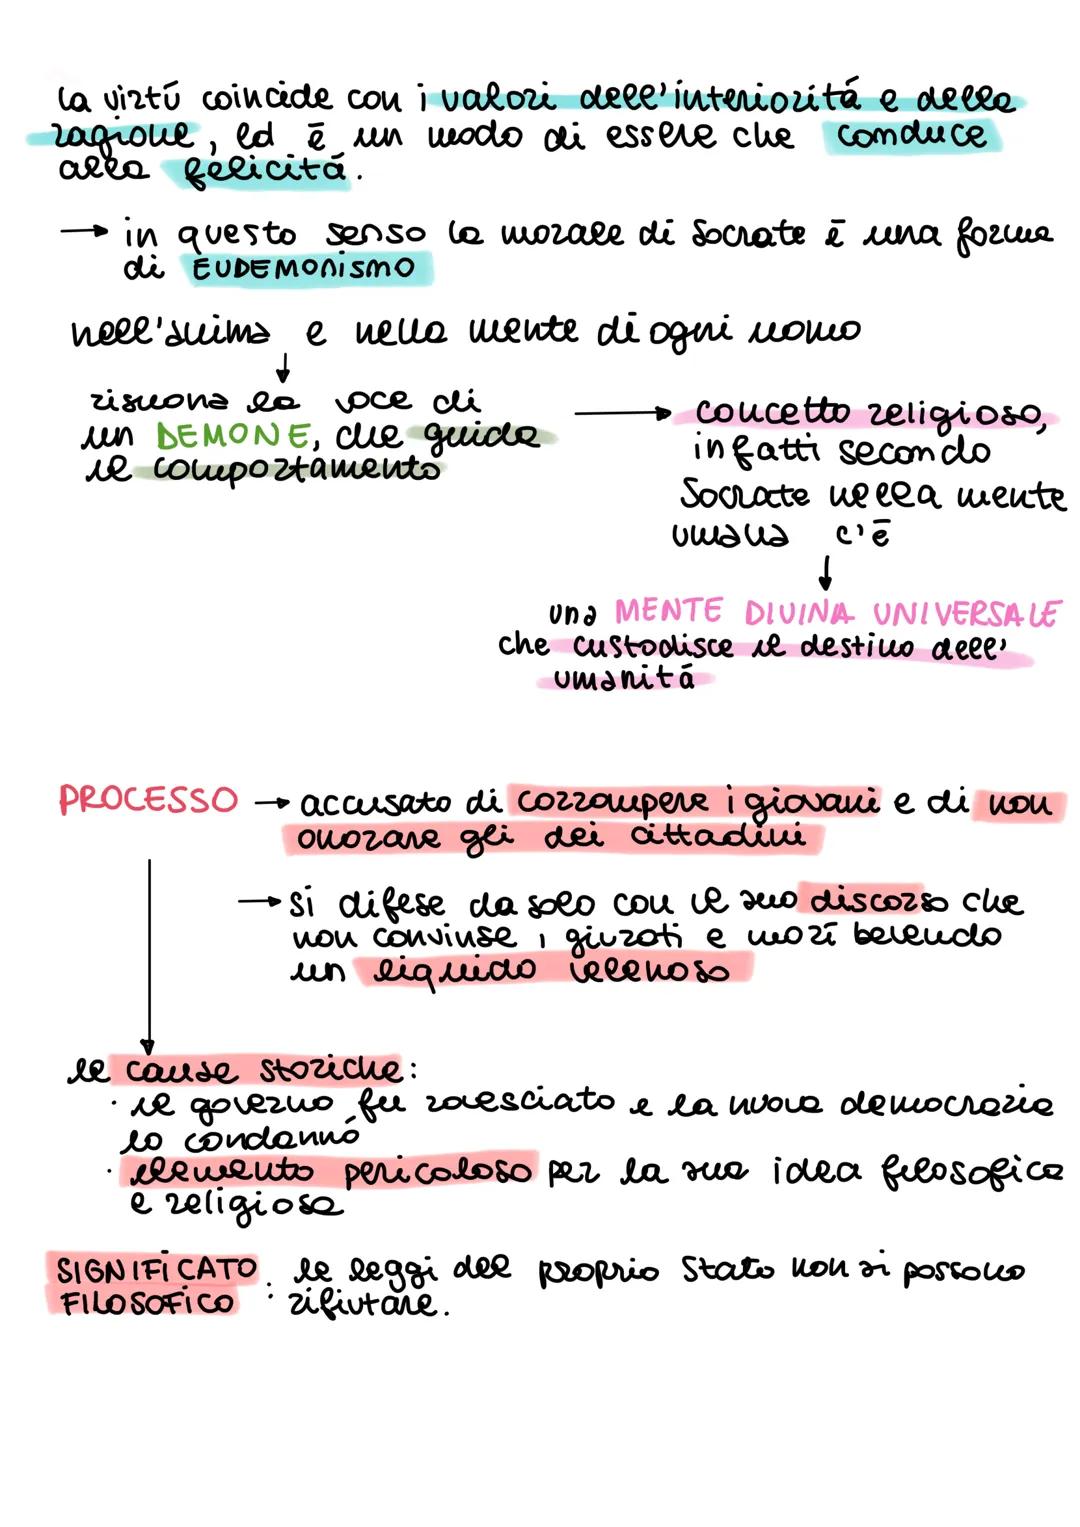 la virtú coincide con i valori dell'interioritá e della
ragione, ed é un modo di essere che conduce
alla felicitá.
→ in questo senso la morale di Socrate é una forma
di EUDEMONISMO
nell'anima e nella mente di ogni uomo
↓
risuona la voce di
un DEMONE, che guida
il comportamento
→ concetto religioso,
infatti secondo
Socrate nella mente
umana c'é
↓
una MENTE DIVINA UNIVERSALE
che custodisce il destino dell'
umanitá
PROCESSO → accusato di corrompere i giovani e di non
onorare gli dei cittadini
→ si difese da solo con il suo discorso che
non convinse i giurati e morí bevendo
un liquido velenoso
le cause storiche:
· il governo fu rovesciato e la nuova democrazia
lo condannó
· elemento pericoloso per la sua idea filosofica
e religiosa
SIGNIFICATO FILOSOFICO: le leggi del proprio Stato non si possono
rifiutare.